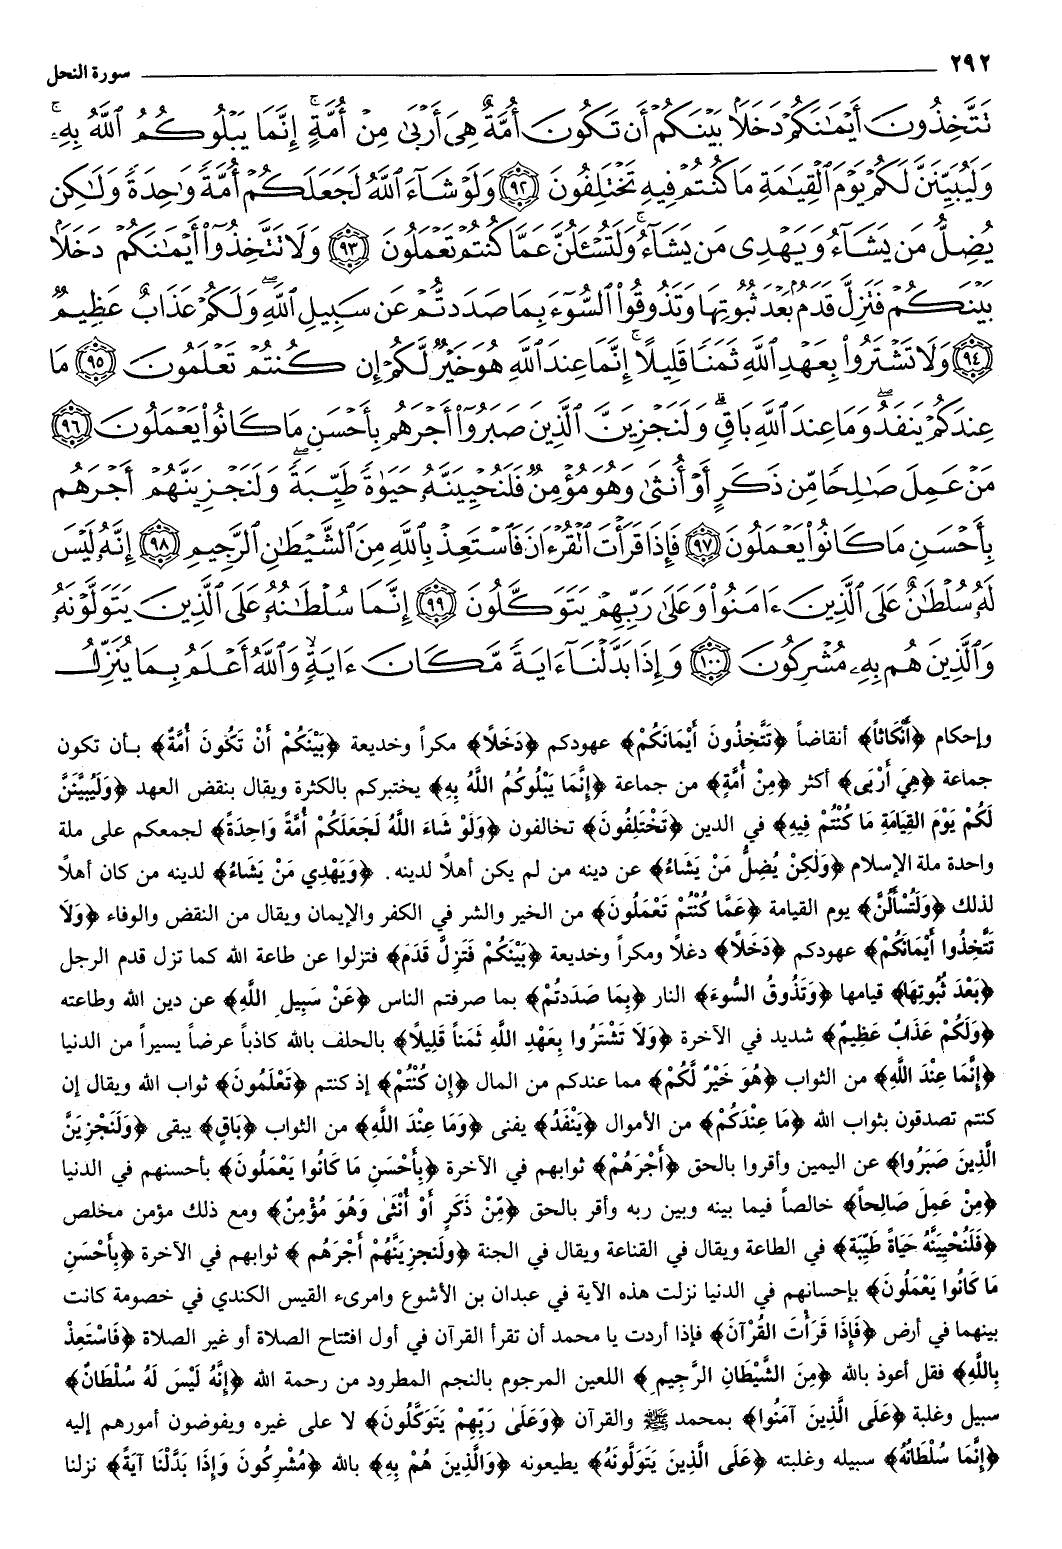 ٢٩٢ سورة النحل
تَتَّخِذُونَ أَيْمَٰنَكُمْ دَخَلًۢا بَيْنَكُمْ أَن تَكُونَ أُمَّةٌ هِىَ أَرْبَىٰ مِنْ أُمَّةٍ ۚ إِنَّمَا يَبْلُوكُمُ ٱللَّهُ بِهِۦ ۚ
وَلَيُبَيِّنَنَّ لَكُمْ يَوْمَ ٱلْقِيَٰمَةِ مَا كُنتُمْ فِيهِ تَخْتَلِفُونَ ﴿٩٢﴾ وَلَوْ شَآءَ ٱللَّهُ لَجَعَلَكُمْ أُمَّةً وَٰحِدَةً وَلَٰكِن
يُضِلُّ مَن يَشَآءُ وَيَهْدِى مَن يَشَآءُ ۚ وَلَتُسْـَٔلُنَّ عَمَّا كُنتُمْ تَعْمَلُونَ ﴿٩٣﴾ وَلَا تَتَّخِذُوٓا۟ أَيْمَٰنَكُمْ دَخَلًۢا
بَيْنَكُمْ فَتَزِلَّ قَدَمٌۢ بَعْدَ ثُبُوتِهَا وَتَذُوقُوا۟ ٱلسُّوٓءَ بِمَا صَدَدتُّمْ عَن سَبِيلِ ٱللَّهِ ۖ وَلَكُمْ عَذَابٌ عَظِيمٌ
﴿٩٤﴾ وَلَا تَشْتَرُوا۟ بِعَهْدِ ٱللَّهِ ثَمَنًا قَلِيلًا ۚ إِنَّمَا عِندَ ٱللَّهِ هُوَ خَيْرٌ لَّكُمْ إِن كُنتُمْ تَعْلَمُونَ ﴿٩٥﴾ مَا
عِندَكُمْ يَنفَدُ ۖ وَمَا عِندَ ٱللَّهِ بَاقٍ ۗ وَلَنَجْزِيَنَّ ٱلَّذِينَ صَبَرُوٓا۟ أَجْرَهُم بِأَحْسَنِ مَا كَانُوا۟ يَعْمَلُونَ ﴿٩٦﴾
مَنْ عَمِلَ صَٰلِحًا مِّن ذَكَرٍ أَوْ أُنثَىٰ وَهُوَ مُؤْمِنٌ فَلَنُحْيِيَنَّهُۥ حَيَوٰةً طَيِّبَةً ۖ وَلَنَجْزِيَنَّهُمْ أَجْرَهُم
بِأَحْسَنِ مَا كَانُوا۟ يَعْمَلُونَ ﴿٩٧﴾ فَإِذَا قَرَأْتَ ٱلْقُرْءَانَ فَٱسْتَعِذْ بِٱللَّهِ مِنَ ٱلشَّيْطَٰنِ ٱلرَّجِيمِ ﴿٩٨﴾ إِنَّهُۥ لَيْسَ
لَهُۥ سُلْطَٰنٌ عَلَى ٱلَّذِينَ ءَامَنُوا۟ وَعَلَىٰ رَبِّهِمْ يَتَوَكَّلُونَ ﴿٩٩﴾ إِنَّمَا سُلْطَٰنُهُۥ عَلَى ٱلَّذِينَ يَتَوَلَّوْنَهُۥ
وَٱلَّذِينَ هُم بِهِۦ مُشْرِكُونَ ﴿١٠٠﴾ وَإِذَا بَدَّلْنَآ ءَايَةً مَّكَانَ ءَايَةٍ ۙ وَٱللَّهُ أَعْلَمُ بِمَا يُنَزِّلُ
وإحكام ﴿أَنْكَاثاً﴾ أنقاضاً ﴿تَتَّخِذُونَ أَيْمَانَكُمْ﴾ عهودكم ﴿دَخَلاً﴾ مكراً وخديعة ﴿بَيْنَكُمْ أَنْ تَكُونَ أُمَّةٌ﴾ بأن تكون
جماعة ﴿هِيَ أَرْبَى﴾ أكثر ﴿مِنْ أُمَّةٍ﴾ من جماعة ﴿إِنَّمَا يَبْلُوكُمُ اللَّهُ بِهِ﴾ يختبركم بالكثرة ويقال بنقض العهد ﴿وَلَيُبَيِّنَنَّ
لَكُمْ يَوْمَ القِيَامَةِ مَا كُنْتُمْ فِيهِ﴾ في الدين ﴿تَخْتَلِفُونَ﴾ تخالفون ﴿وَلَوْ شَاءَ اللَّهُ لَجَعَلَكُمْ أُمَّةً وَاحِدَةً﴾ لجمعكم على ملة
واحدة ملة الإسلام ﴿وَلٰكِنْ يُضِلُّ مَنْ يَشَاءُ﴾ عن دينه من لم يكن أهلاً لدينه. ﴿وَيَهْدِي مَنْ يَشَاءُ﴾ لدينه من كان أهلاً
لذلك ﴿وَلَتُسْأَلُنَّ﴾ يوم القيامة ﴿عَمَّا كُنْتُمْ تَعْمَلُونَ﴾ من الخير والشر في الكفر والإيمان ويقال من النقض والوفاء ﴿وَلَا
تَتَّخِذُوا أَيْمَانَكُمْ﴾ عهودكم ﴿دَخَلاً﴾ دغلاً ومكراً وخديعة ﴿بَيْنَكُمْ فَتَزِلَّ قَدَمٌ﴾ فتزلوا عن طاعة الله كما تزل قدم الرجل
﴿بَعْدَ ثُبُوتِهَا﴾ قيامها ﴿وَتَذُوقُ السُّوءَ﴾ النار ﴿بِمَا صَدَدتُمْ﴾ بما صرفتم الناس ﴿عَنْ سَبِيلِ اللَّهِ﴾ عن دين الله وطاعته
﴿وَلَكُمْ عَذَابٌ عَظِيمٌ﴾ شديد في الآخرة ﴿وَلَا تَشْتَرُوا بِعَهْدِ اللَّهِ ثَمَناً قَلِيلاً﴾ بالحلف بالله كاذباً عرضاً يسيراً من الدنيا
﴿إِنَّمَا عِنْدَ اللَّهِ﴾ من الثواب ﴿هُوَ خَيْرٌ لَّكُمْ﴾ مما عندكم من المال ﴿إِن كُنْتُمْ﴾ إذ كنتم ﴿تَعْلَمُونَ﴾ ثواب الله ويقال إن
كنتم تصدقون بثواب الله ﴿مَا عِنْدَكُمْ﴾ من الأموال ﴿يَنْفَدُ﴾ يفنى ﴿وَمَا عِنْدَ اللَّهِ﴾ من الثواب ﴿بَاقٍ﴾ يبقى ﴿وَلَنَجْزِيَنَّ
الَّذِينَ صَبَرُوا﴾ عن اليمين وأقروا بالحق ﴿أَجْرَهُمْ﴾ ثوابهم في الآخرة ﴿بِأَحْسَنِ مَا كَانُوا يَعْمَلُونَ﴾ بأحسنهم في الدنيا
﴿مِنْ عَمِلَ صَالِحاً﴾ خالصاً فيما بينه وبين ربه وأقر بالحق ﴿مِّنْ ذَكَرٍ أَوْ أُنْثَىٰ وَهُوَ مُؤْمِنٌ﴾ ومع ذلك مؤمن مخلص
﴿فَلَنُحْيِيَنَّهُ حَيَاةً طَيِّبَةً﴾ في الطاعة ويقال في القناعة ويقال في الجنة ﴿ولَنَجزِيَنَّهُمْ أَجْرَهُم﴾ ثوابهم في الآخرة ﴿بِأَحْسَنِ
مَا كَانُوا يَعْمَلُونَ﴾ بإحسانهم في الدنيا نزلت هذه الآية في عبدان بن الأشوع وامرىء القيس الكندي في خصومة كانت
بينهما في أرض ﴿فَإِذَا قَرَأْتَ القُرْآنَ﴾ فإذا أردت يا محمد أن تقرأ القرآن في أول افتتاح الصلاة أو غير الصلاة ﴿فَاسْتَعِذْ
بِاللَّهِ﴾ فقل أعوذ بالله ﴿مِنَ الشَّيْطَانِ الرَّجِيمِ﴾ اللعين المرجوم بالنجم المطرود من رحمة الله ﴿إِنَّهُ لَيْسَ لَهُ سُلْطَانٌ﴾
سبيل وغلبة ﴿عَلَى الَّذِينَ آمَنُوا﴾ بمحمد ﷺ والقرآن ﴿وَعَلَىٰ رَبِّهِمْ يَتَوَكَّلُونَ﴾ لا على غيره ويفوضون أمورهم إليه
﴿إِنَّمَا سُلْطَانُهُ﴾ سبيله وغلبته ﴿عَلَى الَّذِينَ يَتَوَلَّونَهُ﴾ يطيعونه ﴿وَالَّذِينَ هُمْ بِهِ﴾ بالله ﴿مُشْرِكُونَ وَإِذَا بَدَّلْنَا آيَةً﴾ نزلنا